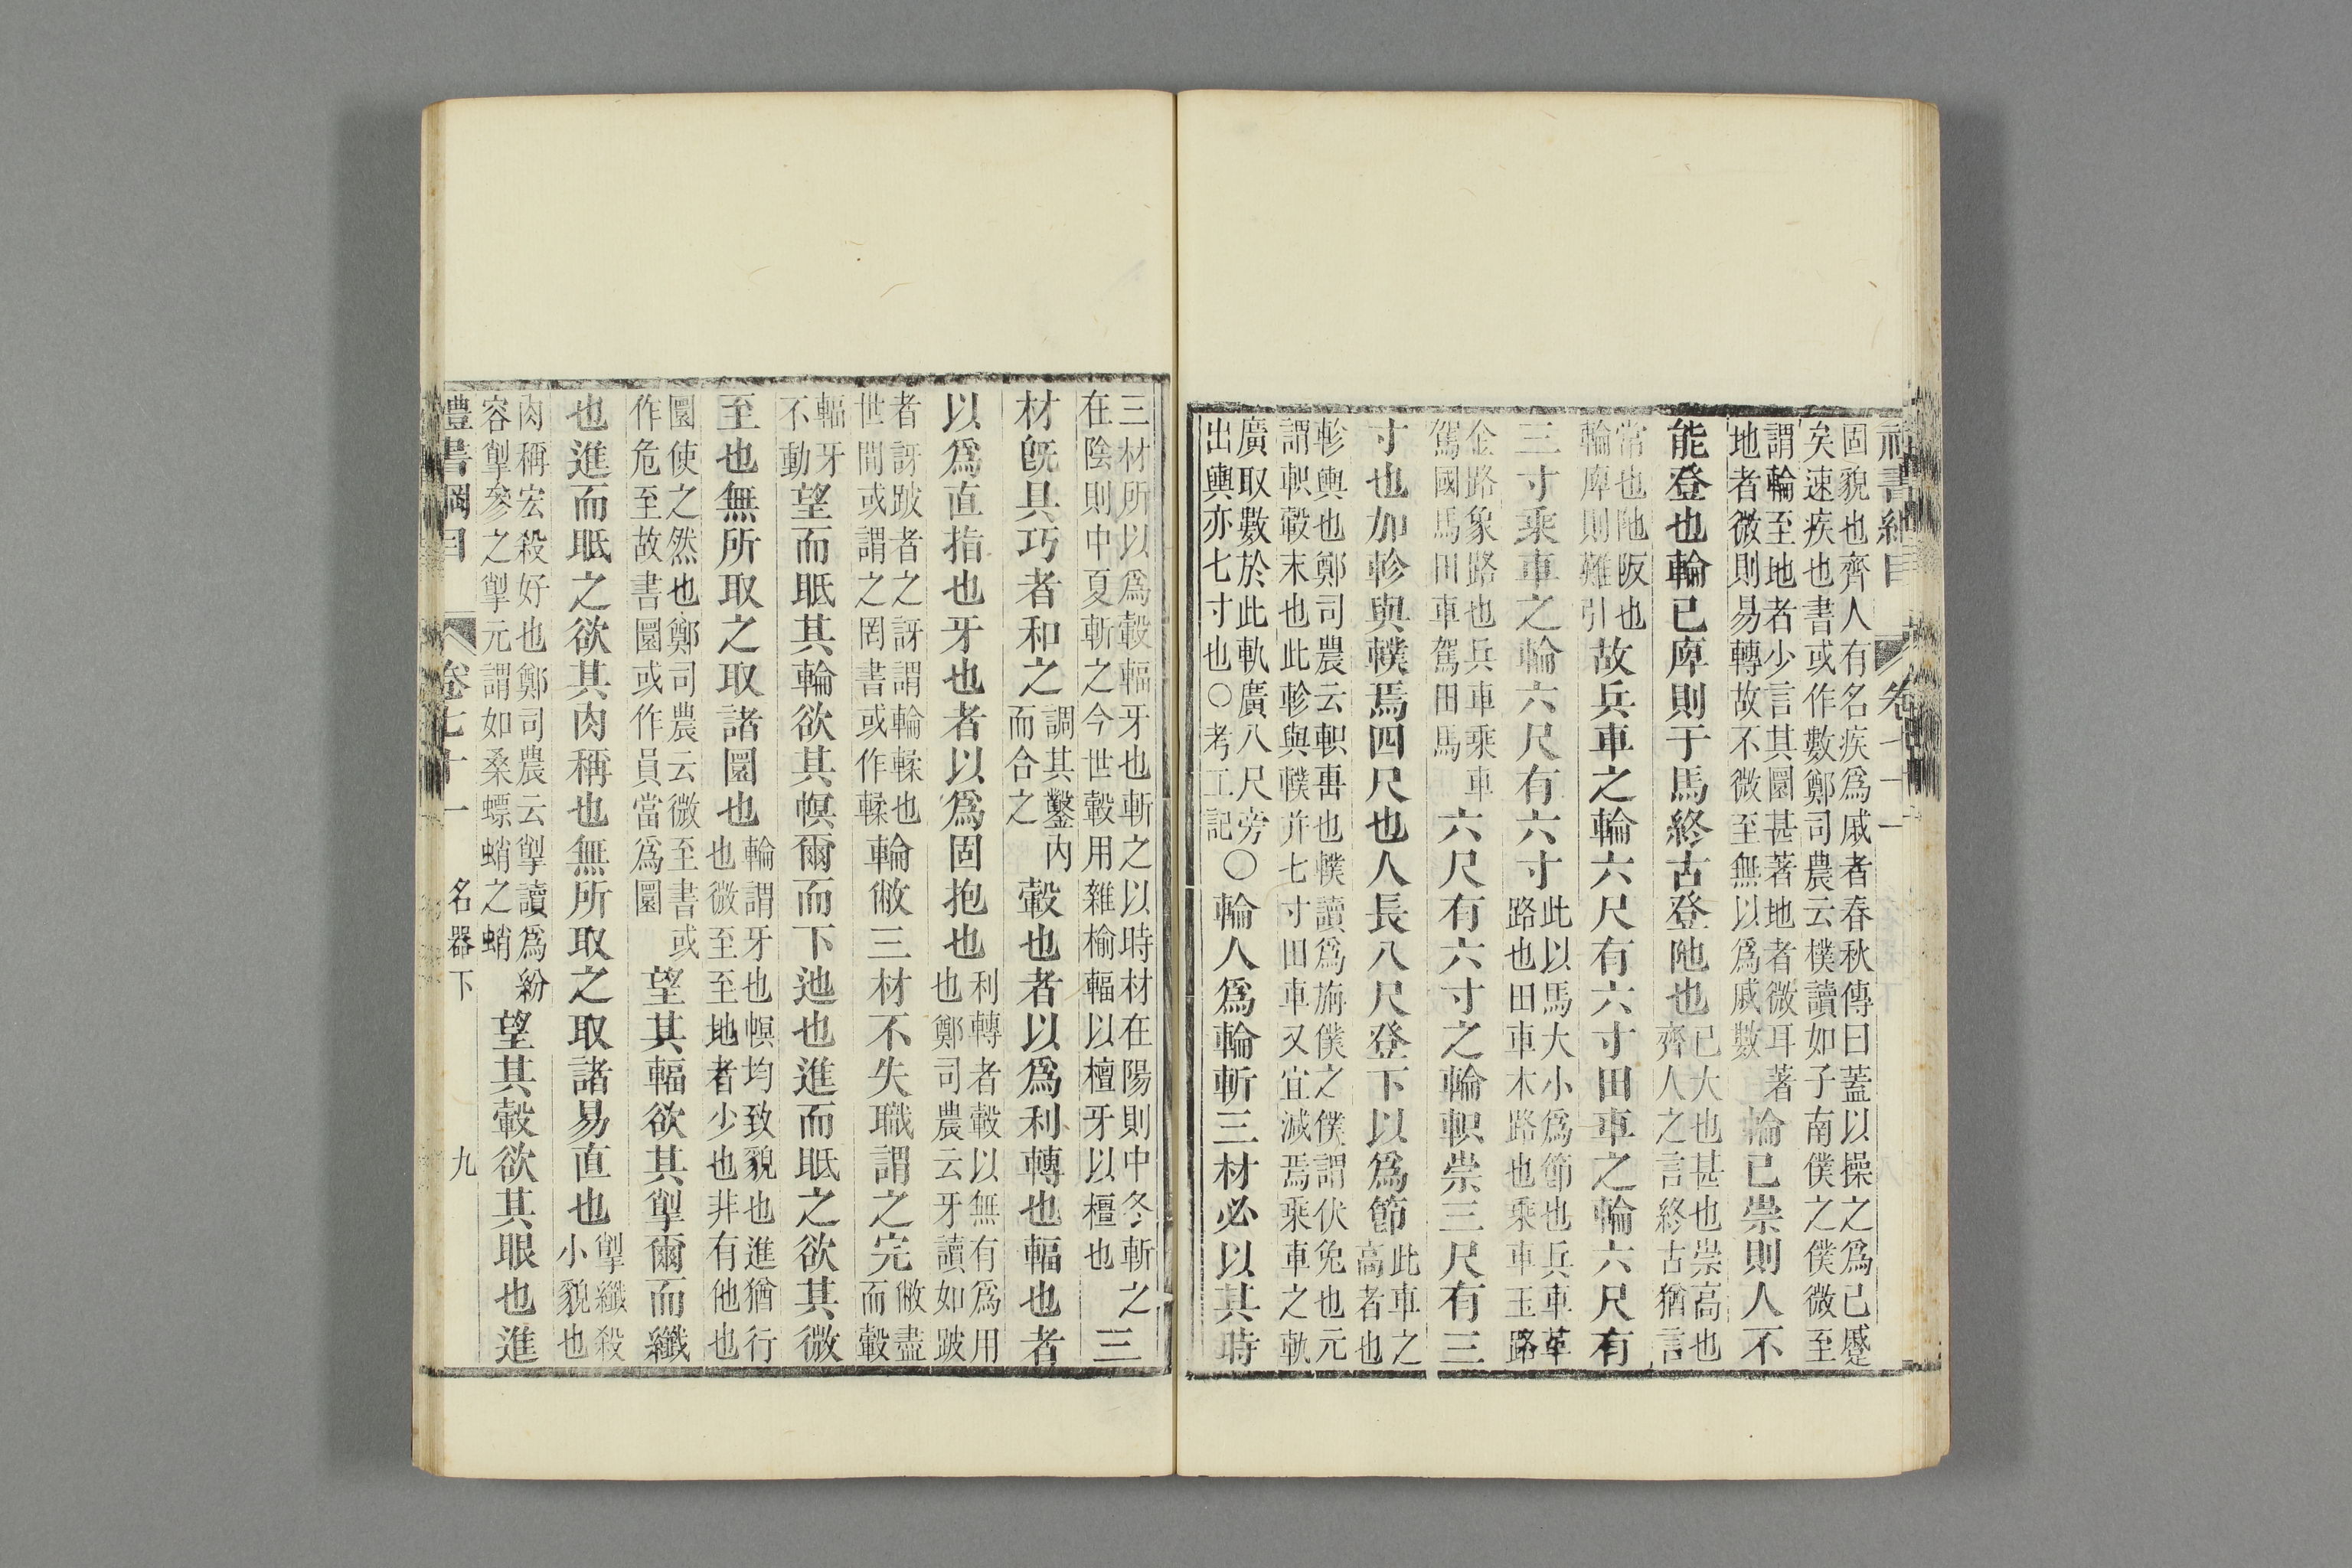 禮書綱目 卷七十一
固貌也齊人有名疾爲戚者春秋傳曰蓋以操之爲已蹙
矣速疾也書或作數鄭司農云樸讀如子南僕之僕微至
謂輪至地者少言其圜甚著地者微耳著
地者微則易轉故不微至無以爲戚數
輪已崇則人不
能登也輪已庳則于馬終古登阤也
已大也甚也崇高也
齊人之言終古猶言
常也阤阪也
輪庳則難引
故兵車之輪六尺有六寸田車之輪六尺有
三寸乘車之輪六尺有六寸
此以馬大小爲節也兵車革
路也田車木路也乘車玉路
金路象路也兵車乘車
駕國馬田車駕田馬
六尺有六寸之輪軹崇三尺有三
寸也加軫與轐焉四尺也人長八尺登下以爲節
此車之
高者也
軫輿也鄭司農云軹軎也轐讀爲旃僕之僕謂伏兔也元
謂軹轂末也此軫與轐并七寸田車又宜減焉乘車之軌
廣取數於此軌廣八尺旁
出輿亦七寸也○考工記
○輪人爲輪斬三材必以其時
三材所以爲轂輻牙也斬之以時材在陽則中冬斬之
在陰則中夏斬之今世轂用雜楡輻以檀牙以橿也
三
材旣具巧者和之
調其鑿內
而合之
轂也者以爲利轉也輻也者
以爲直指也牙也者以爲固抱也
利轉者轂以無有爲用
也鄭司農云牙讀如跛
者訝跛者之訝謂輪輮也
世閒或謂之罔書或作輮
輪敝三材不失職謂之完
敝盡
而轂
輻牙
不動
望而眡其輪欲其幎爾而下迆也進而眡之欲其微
至也無所取之取諸圜也
輪謂牙也幎均致貌也進猶行
也微至至地者少也非有他也
圜使之然也鄭司農云微至書或
作危至故書圜或作員當爲圜
望其輻欲其掣爾而纖
也進而眡之欲其肉稱也無所取之取諸易直也
掣纖殺
小貌也
肉稱宏殺好也鄭司農云掣讀爲紛
容掣參之掣元謂如桑螵蛸之蛸
望其轂欲其眼也進
禮書綱目 卷七十一 名器下 九